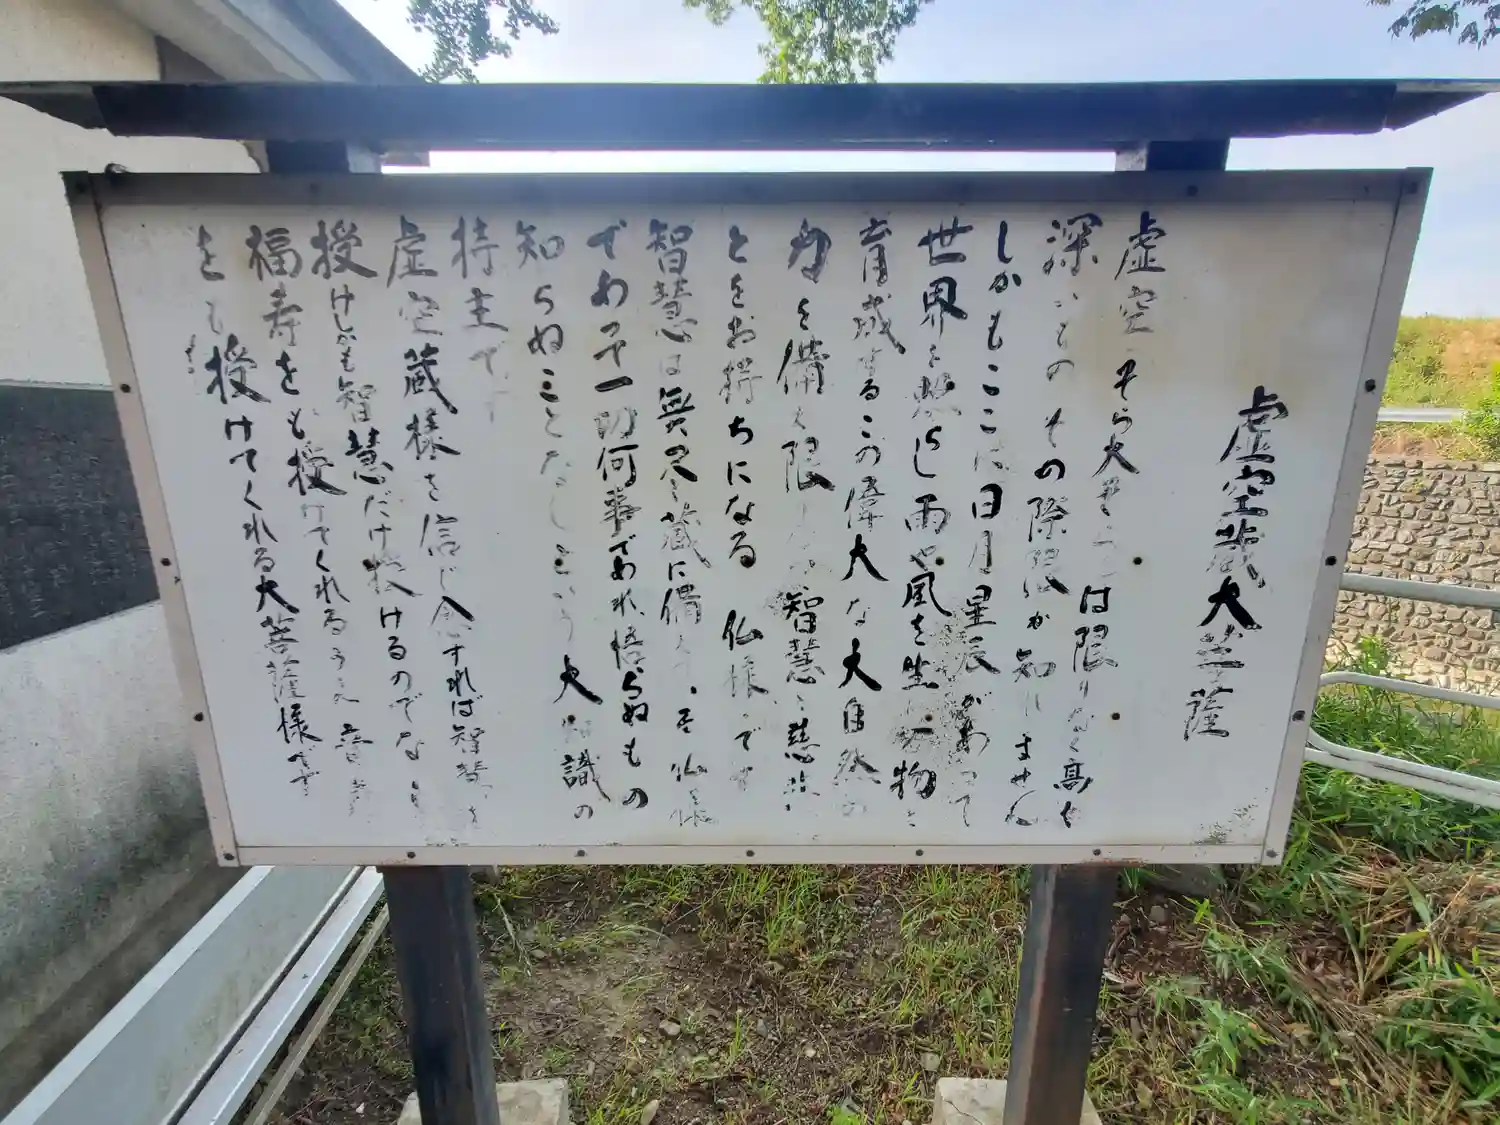 虚空蔵大菩薩
虚空 そら大 は限りなく高く
深いもの その際限が知れません
しかもここに日月星辰があって
世界を照らし雨や風を生 万物を
育成するこの偉大な大自然の
力を備え限 智慧と慈悲
とをお持ちになる 仏様です
智慧は無尽に蔵に備えて、 仏様
であって一切何事であれ悟らぬもの
知らぬことなしという大 識の
持主です
虚空蔵様を信じ念ずれば智慧を
授けしかも智慧だけ授けるのでなく
福寿をも授けてくれるうえ 
をも授けてくれる大菩薩様です